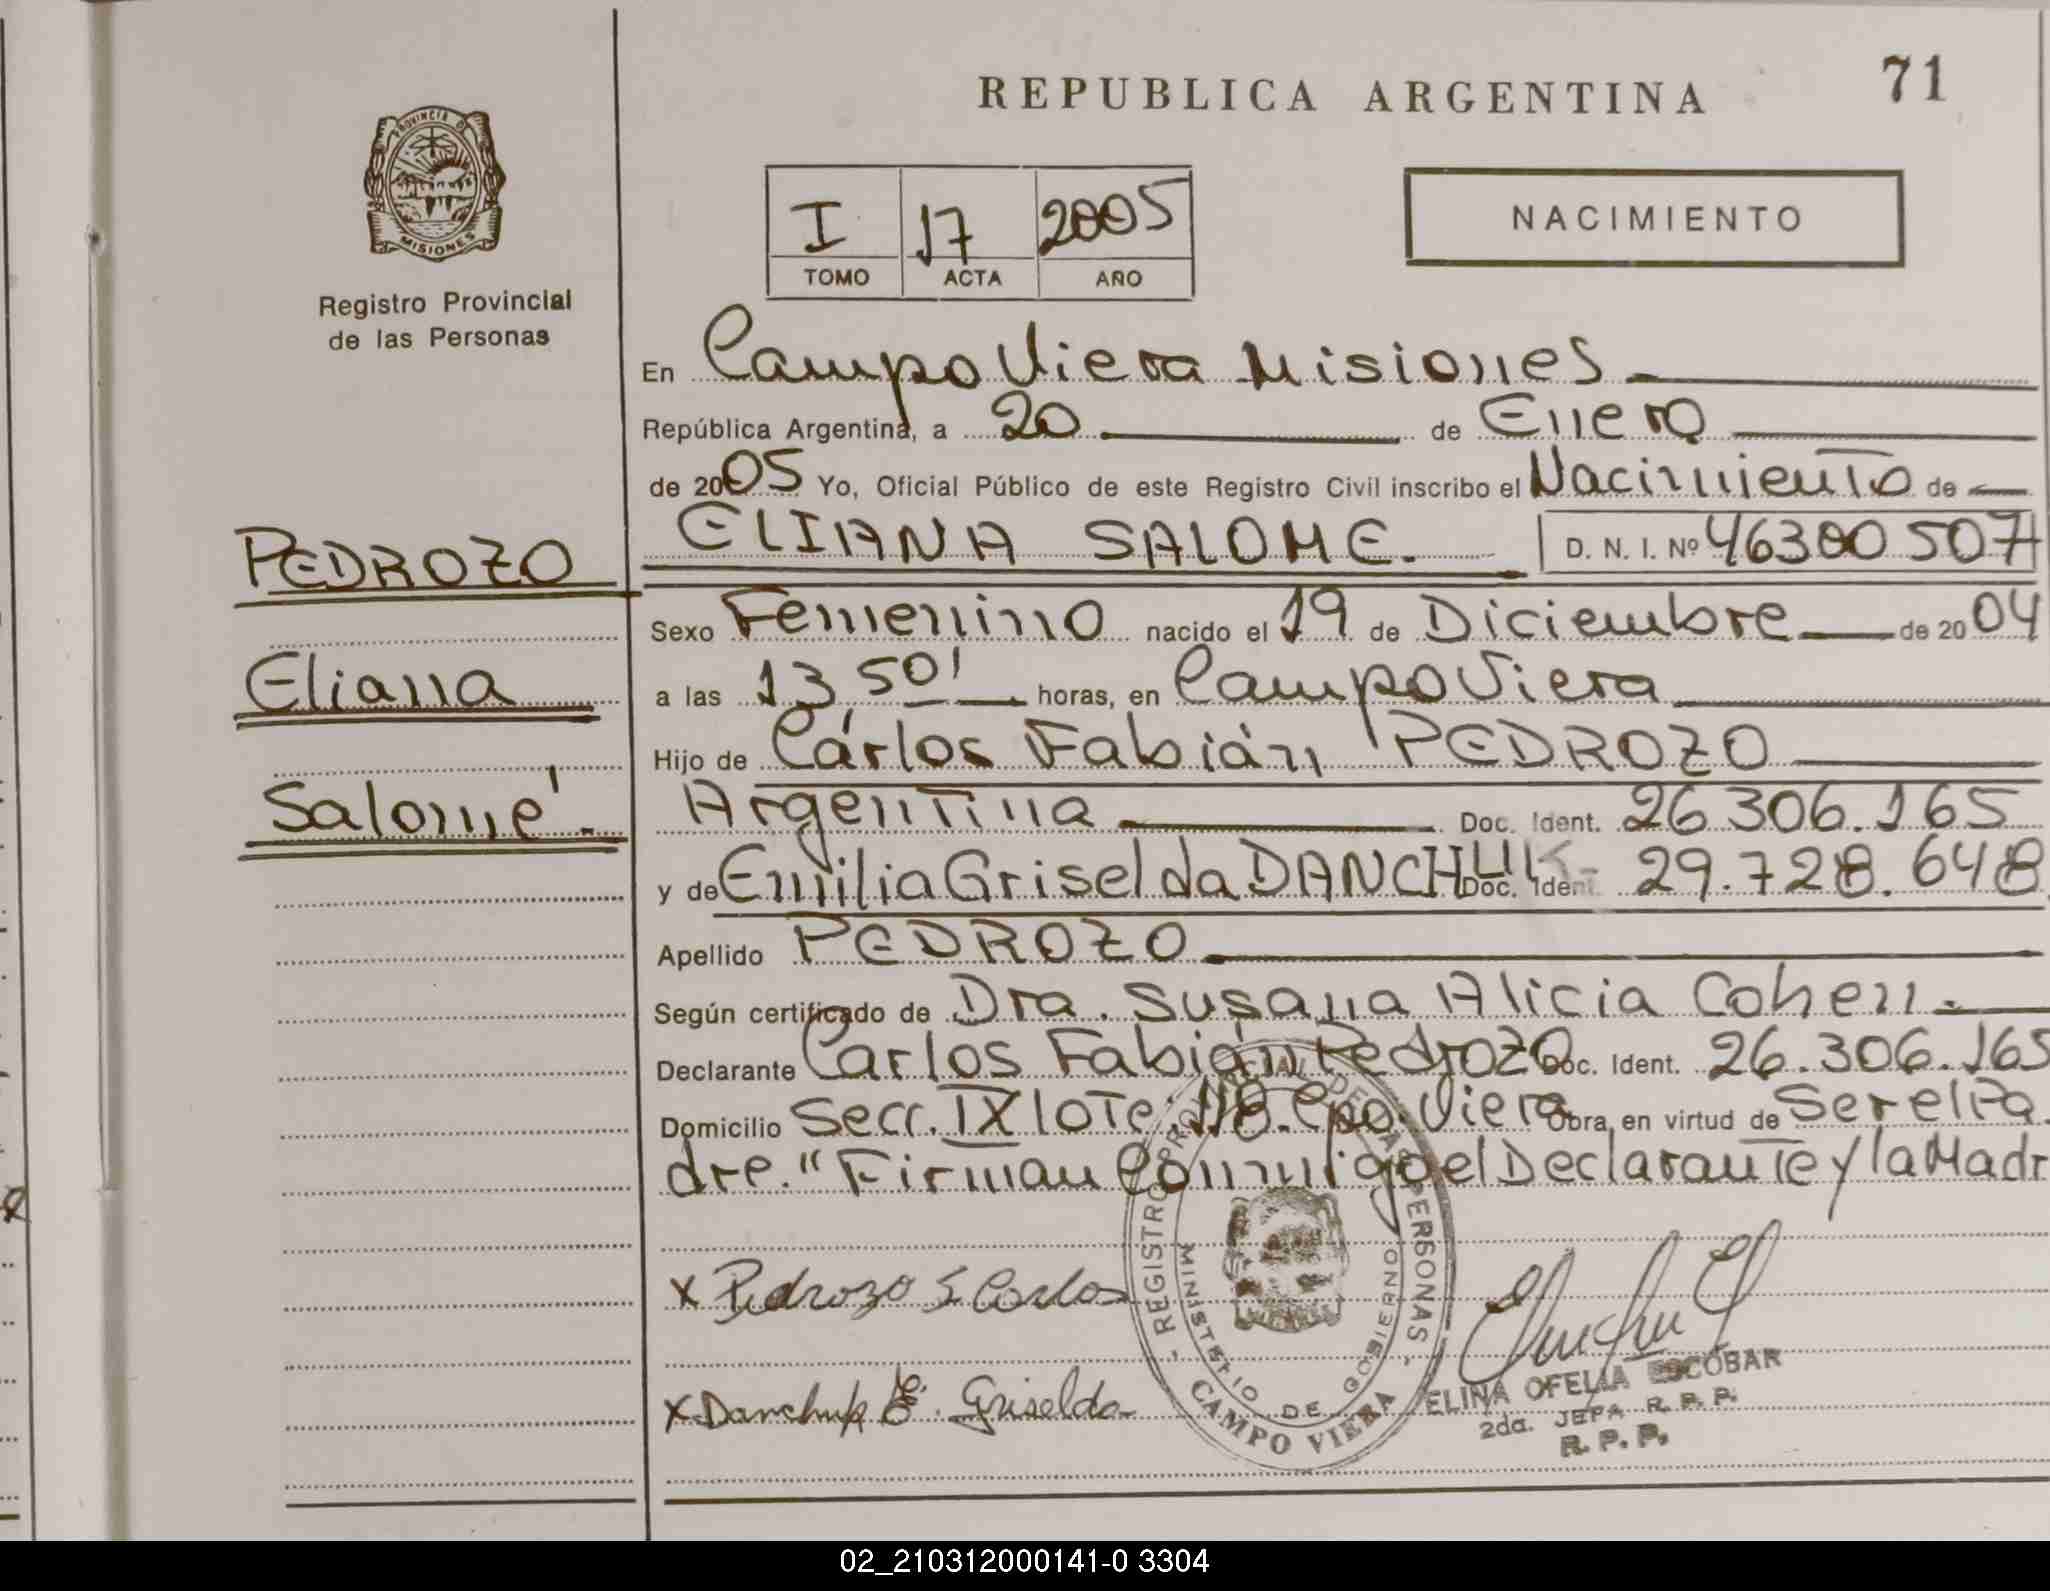 REPUBLICA ARGENTINA
71
PROVINCIA DE
MISIONES
Registro Provincial
de las Personas
I 17 2005
TOMO ACTA AÑO
NACIMIENTO
En Campo Viera Misiones
República Argentina, a 20 de Enero
de 2005 Yo, Oficial Público de este Registro Civil inscribo el Nacimiento de
PEDROZO
ELIANA SALOME. D. N. I. Nº 46300507
Sexo Femenino nacido el 19 de Diciembre de 2004
Eliana
a las 13 50' horas, en Campo Viera
Hijo de Cárlos Fabián PEDROZO
Salomé.
Argentina Doc. Ident. 26 306.165
y de Emilia Griselda DANCHUK Doc. Ident. 29.728.648
Apellido PEDROZO
Según certificado de Dra. Susana Alicia Cohen.
Declarante Carlos Fabián Pedrozo Doc. Ident. 26.306.165
Domicilio Secc. IX lote: 118. Cpo. Viera Obra en virtud de Ser el Pa
dre. " Firman Conmigo el Declarante y la Madr
x Pedrozo Carlos
x Danchuk E. Griselda
- REGISTRO PROVINCIAL DE LAS PERSONAS -
MINISTERIO DE GOBIERNO
CAMPO VIERA
ELINA OFELIA ESCOBAR
2da. JEFA R. P. P.
R. P. P.
02_210312000141-0 3304